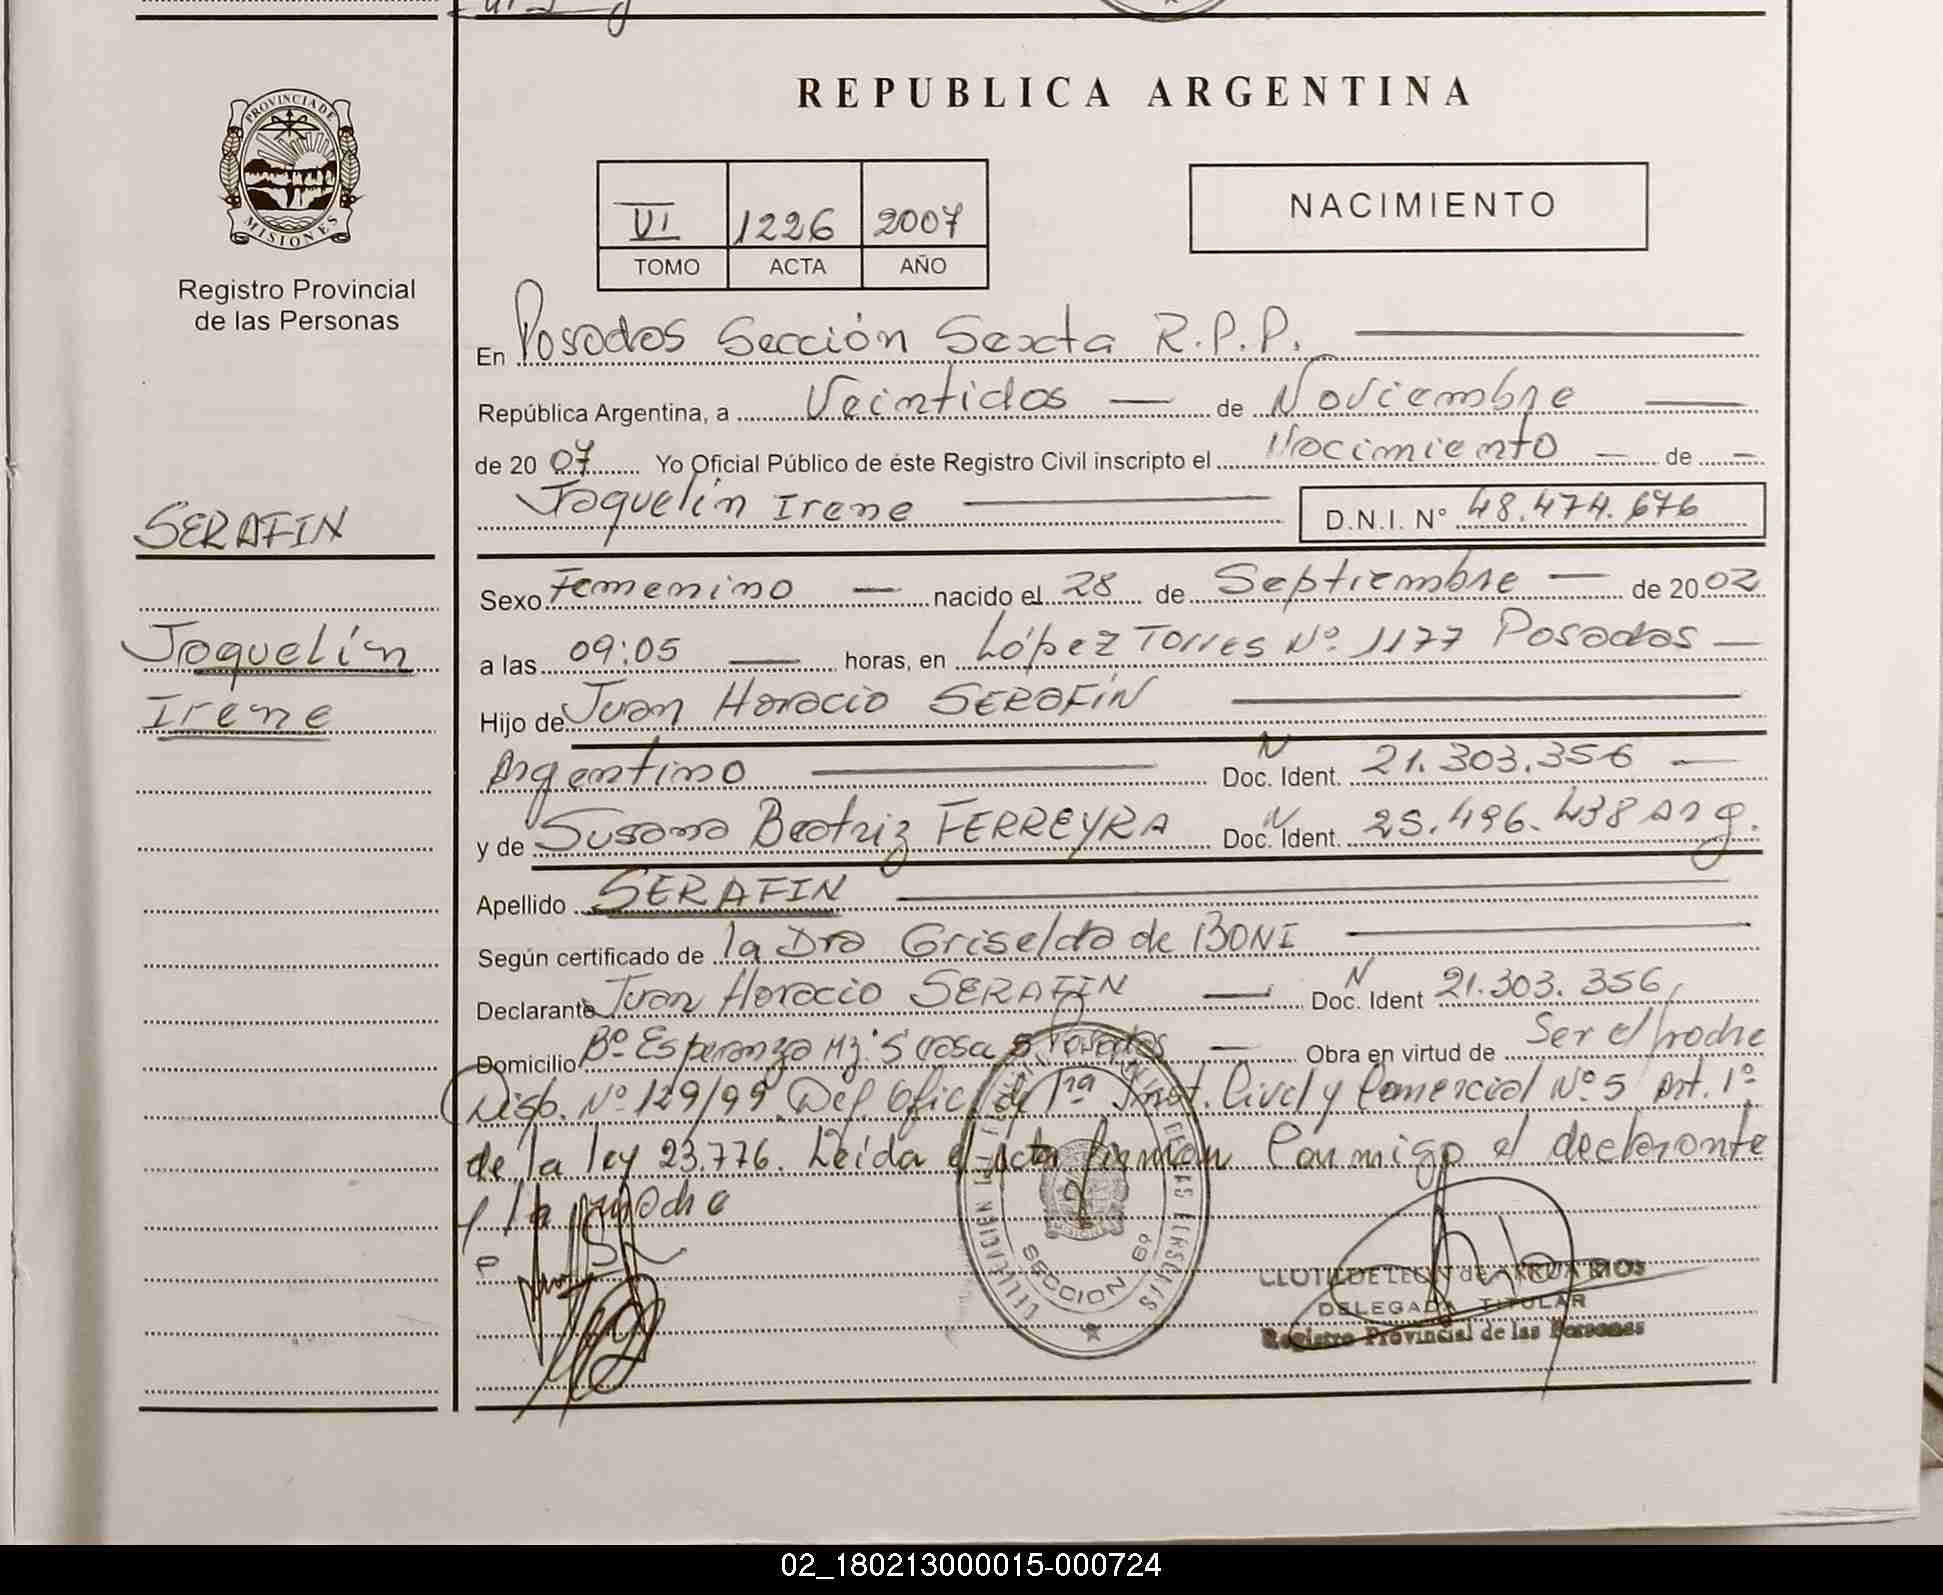 REPUBLICA ARGENTINA
PROVINCIA DE
MISIONES
Registro Provincial
de las Personas
VI 1226 2007
TOMO ACTA AÑO
NACIMIENTO
En Posadas Sección Sexta R.P.P.
República Argentina, a Veintidos — de Noviembre
de 20 07 Yo Oficial Público de éste Registro Civil inscripto el Nacimiento — de —
Jaquelín Irene D.N.I. N° 48.474.676
SERAFIN
Sexo Femenino — nacido el 28 de Septiembre — de 20 02
Jaquelín
a las 09:05 — horas, en López Torres Nº 1177 Posadas —
Irene
Hijo de Juan Horacio SERAFÍN
Argentino N Doc. Ident. 21.303.356 —
y de Susana Beatriz FERREYRA N Doc. Ident. 25.496.438 Arg.
Apellido SERAFIN
Según certificado de la Dra Griselda de BONI
Declarante Juan Horacio SERAFIN — N Doc. Ident 21.303.356
Domicilio Bº Esperanza Mz. 5 casa 5 Posadas — Obra en virtud de Ser el padre
Disp. Nº 129/99 Def. Ofic. de 1ra Inst. Civil y Comercial Nº 5 Art. 1º
de la ley 23.776. Leída el acta firman Conmigo el declarante
y la madre
SECCION 6º
CLOTILDE LEON de ARRUA RIOS
DELEGADA TITULAR
Registro Provincial de las Personas
02_180213000015-000724